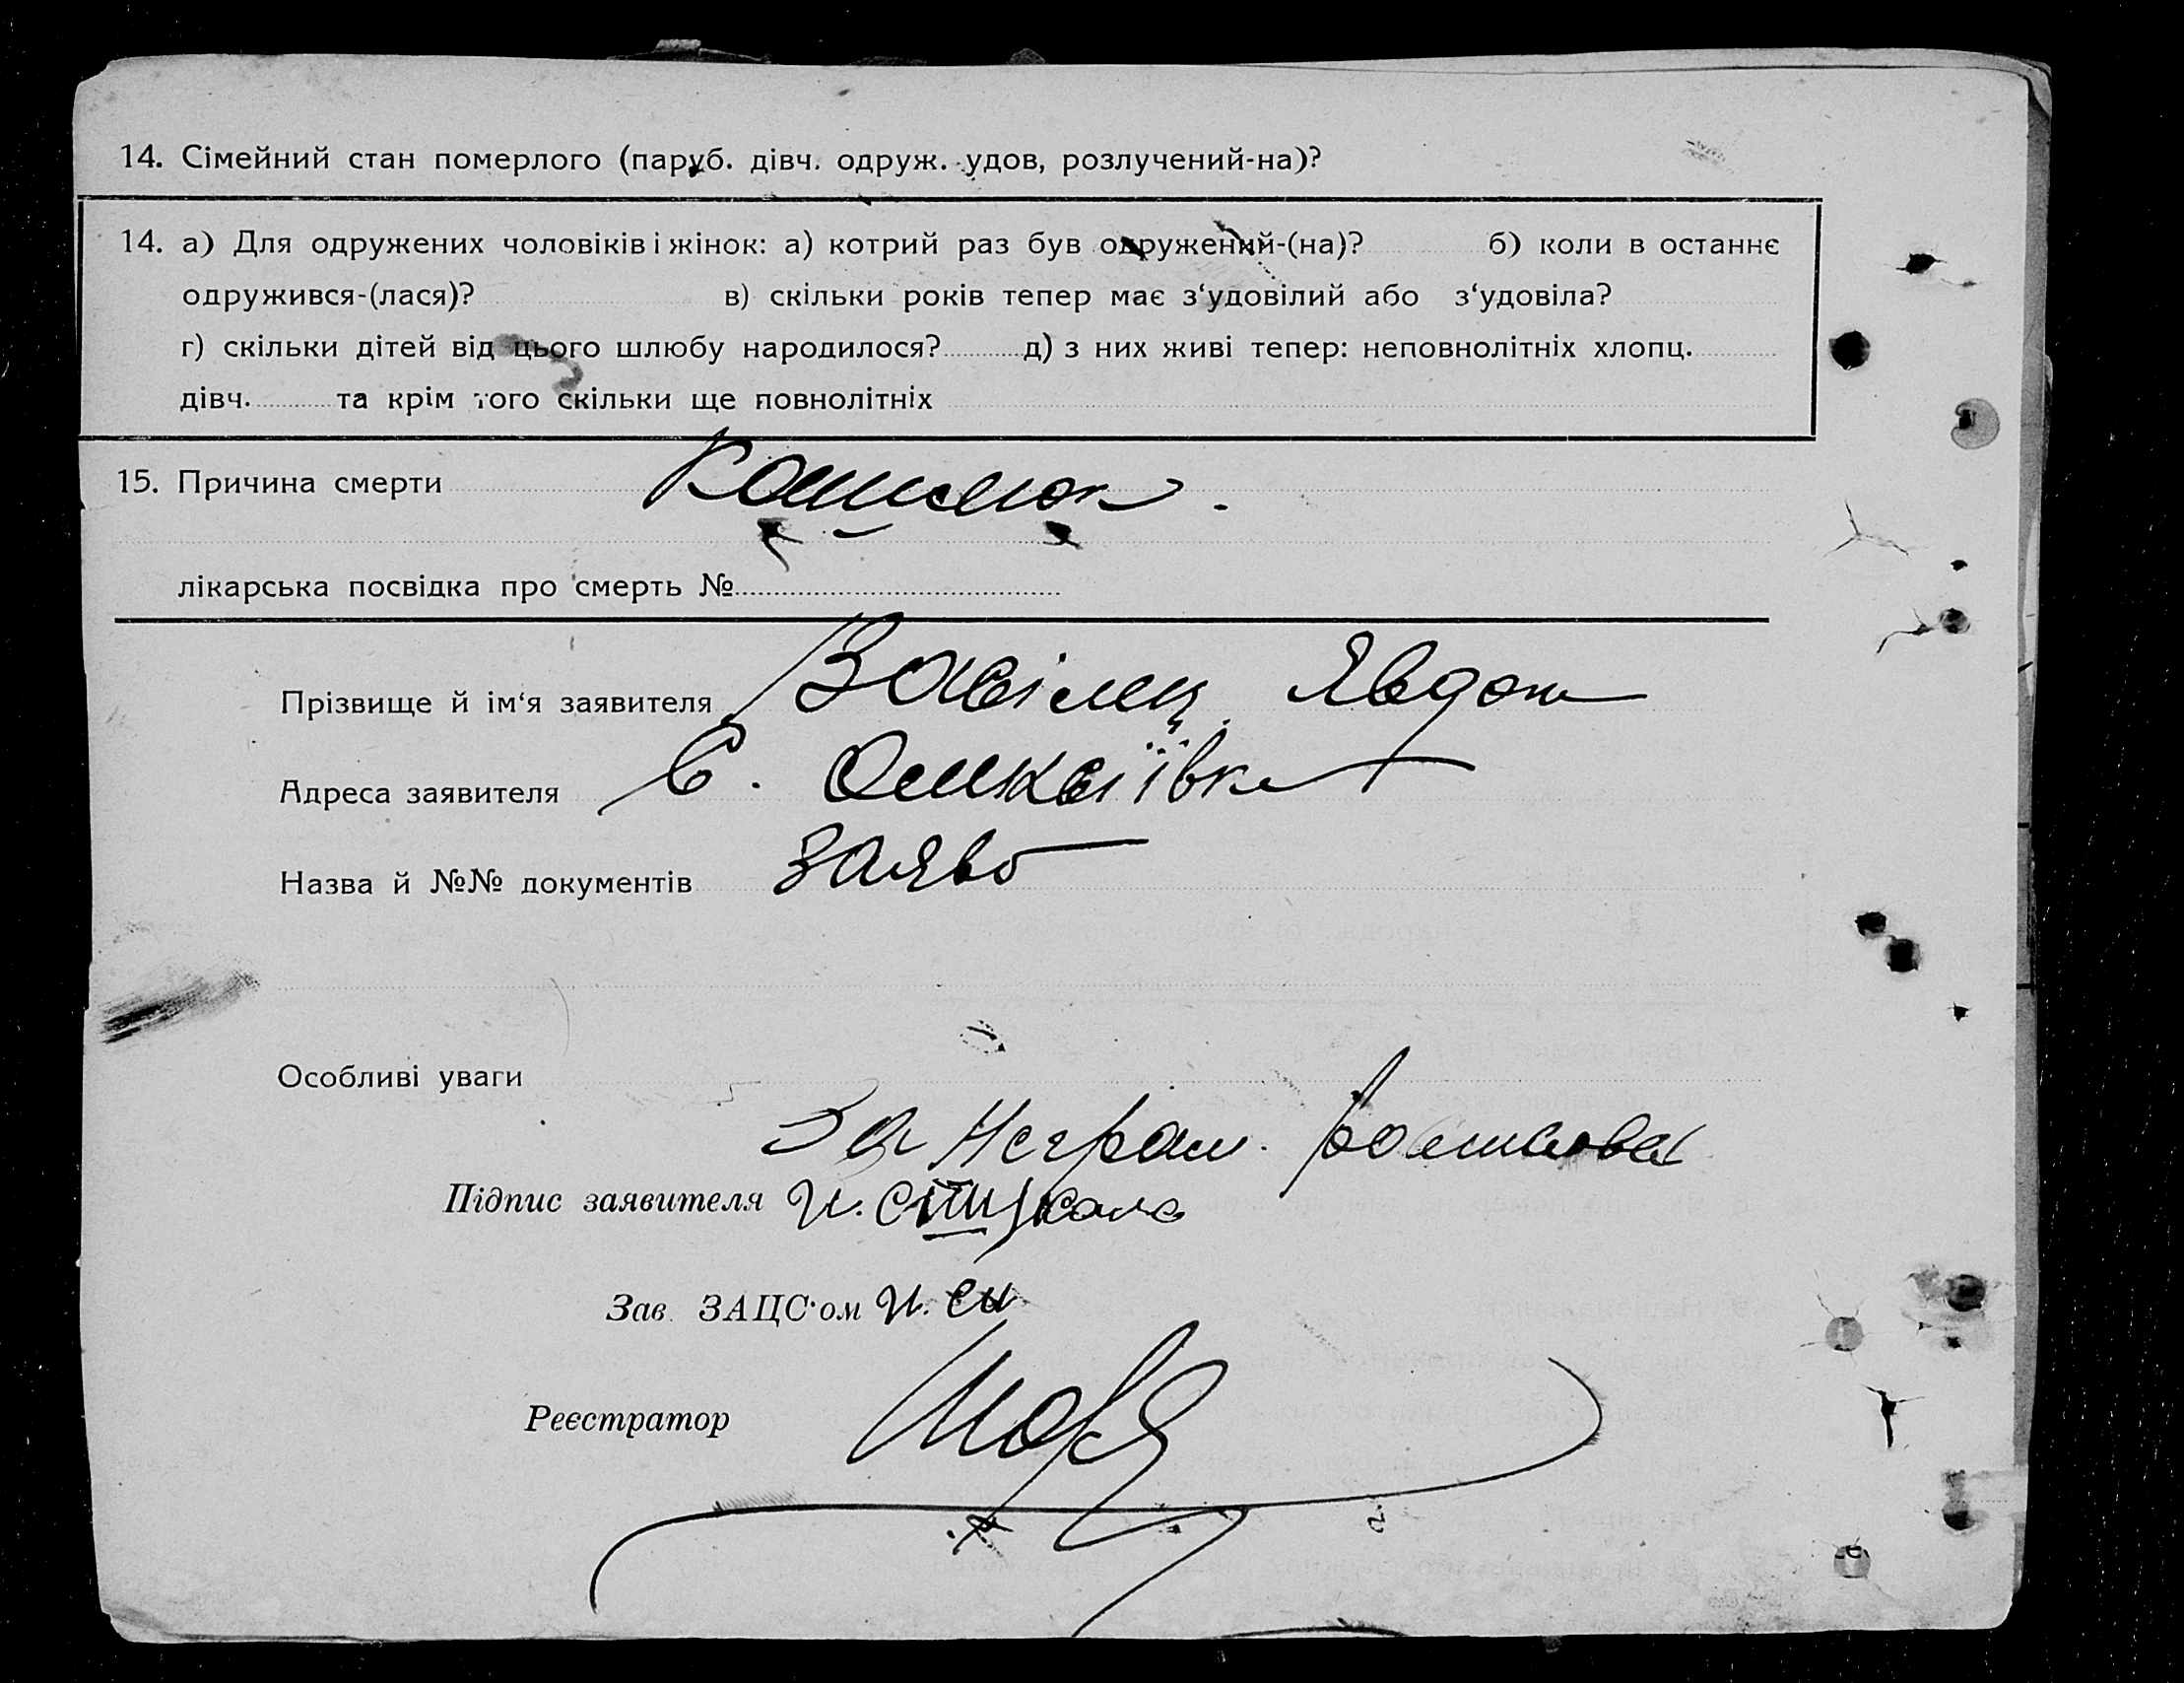 14. Сімейний стан померлого (паруб. дівч. одруж. удов, розлучений-на)?
14. а) Для одружених чоловіків і жінок: а) котрий раз був одружений-(на)? б) коли в останнє
одружився-(лася)? в) скільки років тепер має з‘удовілий або з‘удовіла?
г) скільки дітей від цього шлюбу народилося? д) з них живі тепер: неповнолітніх хлопц.
дівч. та крім того скільки ще повнолітніх
15. Причина смерти
лікарська посвідка про смерть №
Прізвище й ім‘я заявителя Явдох
Адреса заявителя С.
Назва й №№ документів заява
Особливі уваги
За неграм.
Підпис заявителя
Зав. ЗАЦС‘ом
Реєстратор